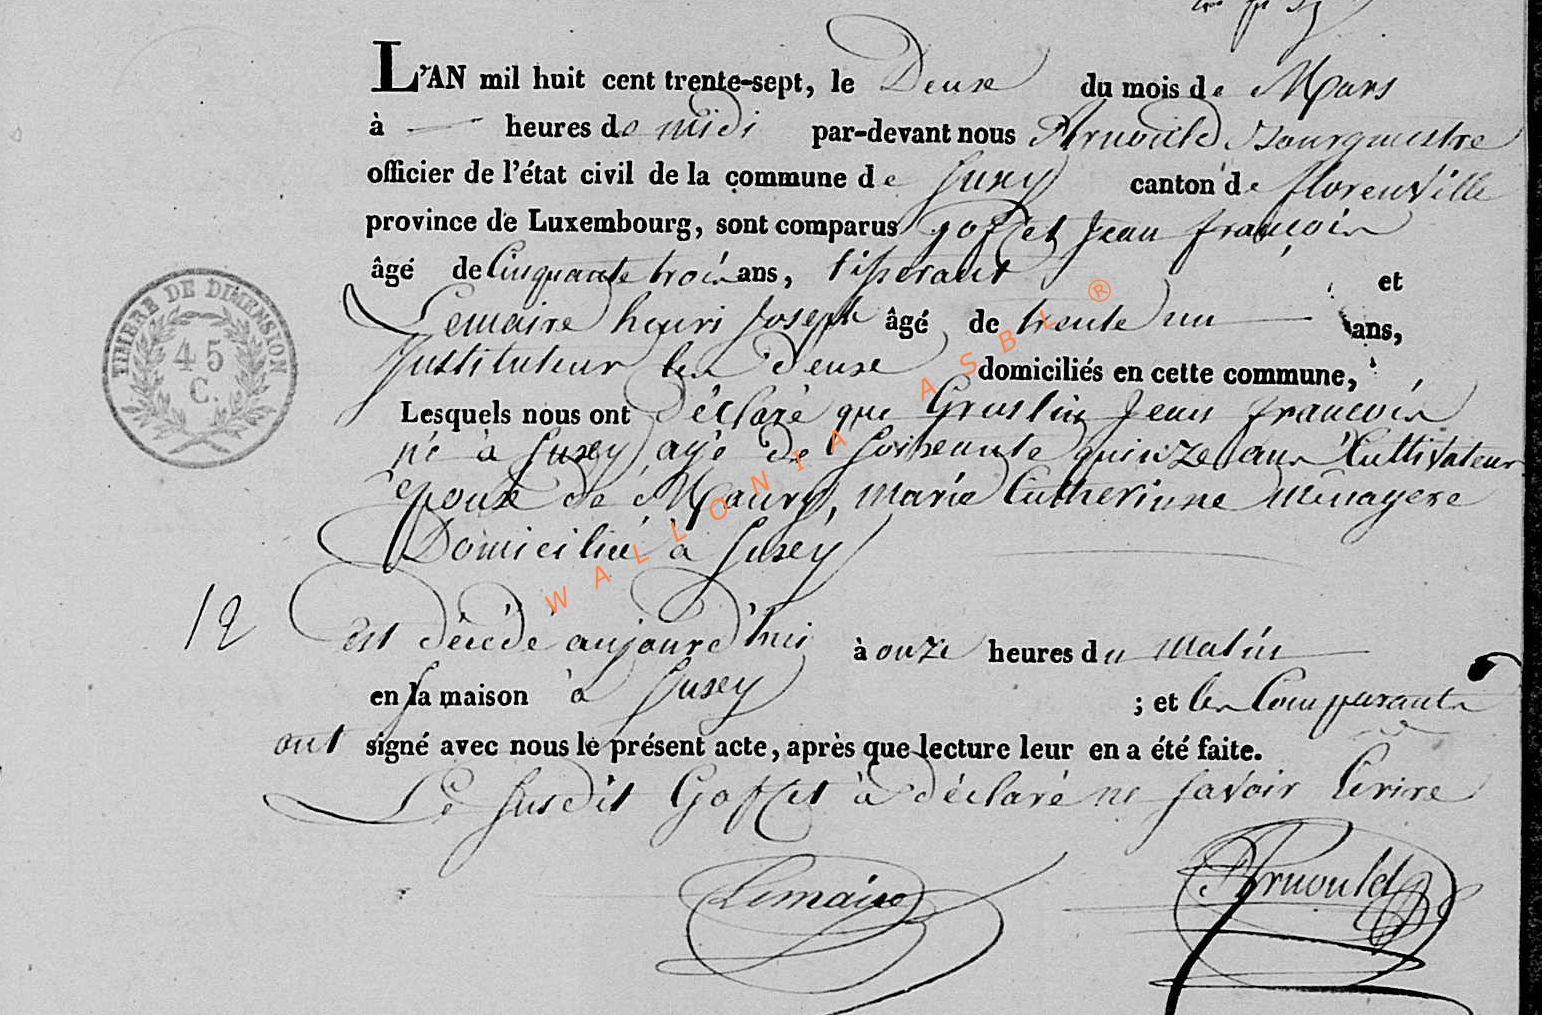 L'AN mil huit cent trente-sept, le Deux du mois de Mars
à — heures de midi par-devant nous Arnould Bourgmestre
officier de l'état civil de la commune de Suxy canton de florenville
province de Luxembourg, sont comparus goffet Jean françois
âgé de Cinquante trois ans, tisserant et
Lemaire henri Joseph âgé de trente un ans,
Instituteur les deux domiciliés en cette commune,
Lesquels nous ont déclaré que Groslin Jean françois
né à Suxy, agé de Soixante quinze ans Cultivateur
Epoux de Maury, marie Catherinne Menagere
Domicilié à Suxy
12
est décédé aujourd'hui à onze heures du matin
en sa maison à Suxy ; et les Comparants
ont signé avec nous le présent acte, après que lecture leur en a été faite.
Le susdit Goffet à déclaré ne savoir Ecrire
Lemaire Arnould
TIMBRE DE DIMENSION
45
C.
WALLONIA ASBL ®